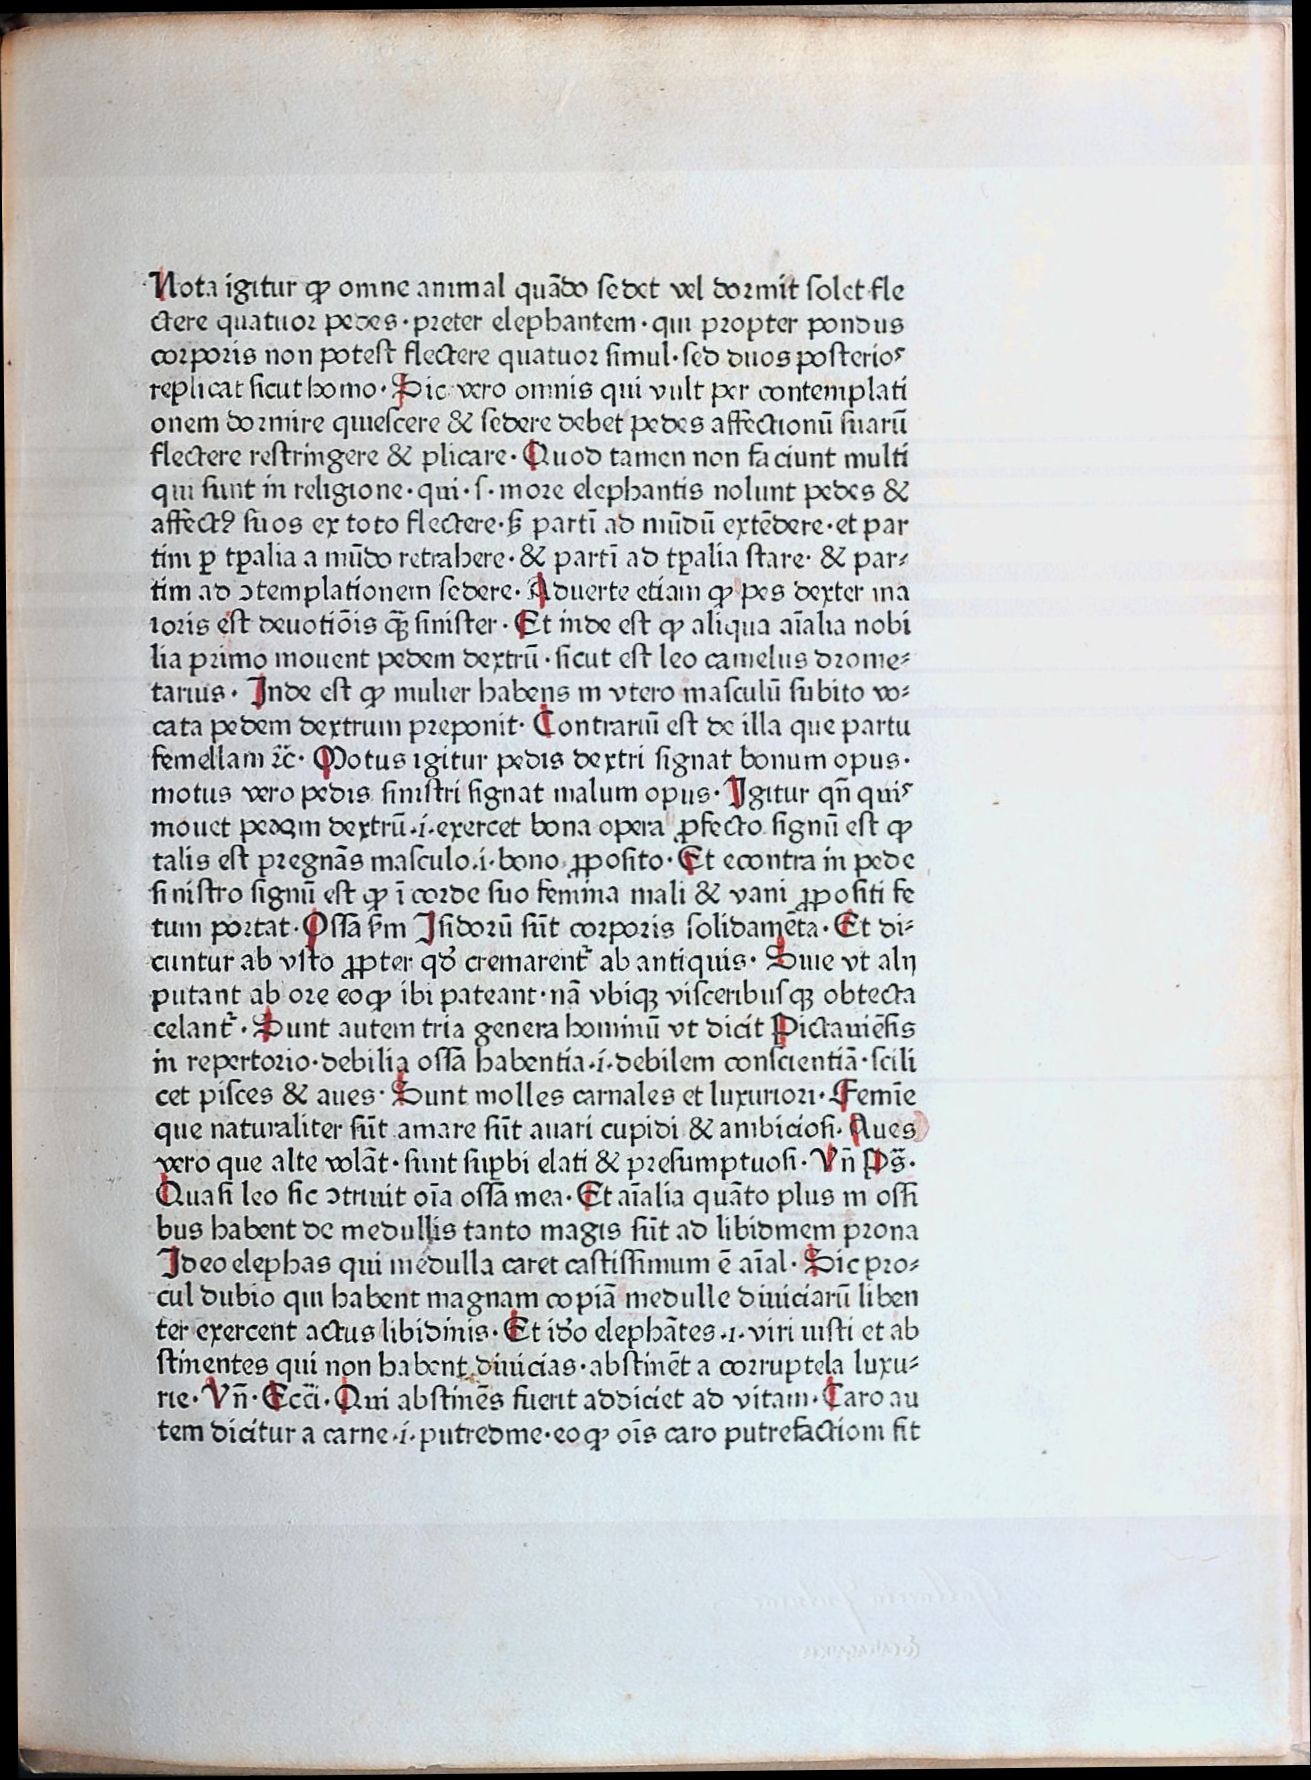 Nota igitur ꝙ omne animal quãdo sedet vel dormit solet fle
ctere quatuor pedes · preter elephantem · qui propter pondus
corporis non potest flectere quatuor simul · sed duos posterioꝭ
replicat sicut homo · Sic vero omnis qui vult per contemplati
onem dormire quiescere & sedere debet pedes affectionũ suarũ
flectere restringere & plicare · Quod tamen non faciunt multi
qui sunt in religione · qui · s · more elephantis nolunt pedes &
affectꝰ suos ex toto flectere · sꝫ partĩ ad mũdũ extẽdere · et par
tim ꝑ tꝑalia a mũdo retrahere · & partĩ ad tꝑalia stare · & par⸗
tim ad ↄtemplationem sedere · Aduerte etiam ꝙ pes dexter ma
ioris est deuotiõis qᷓꝫ sinister · Et inde est ꝙ aliqua aĩalia nobi
lia primo mouent pedem dextrũ · sicut est leo camelus drome⸗
tarius · Inde est ꝙ mulier habens in vtero masculũ subito vo⸗
cata pedem dextrum preponit · Contrariũ est de illa que partu
femellam ⁊c̃ · Motus igitur pedis dextri signat bonum opus ·
motus vero pedis sinistri signat malum opus · Igitur qñ quiꝭ
mouet pedem dextrũ · i · exercet bona opera ꝓfecto signũ est ꝙ
talis est pregnãs masculo · i · bono ꝓposito · Et econtra in pede
sinistro signũ est ꝙ ĩ corde suo femina mali & vani ꝓpositi fe
tum portat · Ossa ẜm Isidorũ sũt corporis solidamẽta · Et di⸗
cuntur ab vsto ꝓpter qđ cremarent᷑ ab antiquis · Siue vt alij
putant ab ore eo ꝙ ibi pateant · nã vbiqꝫ visceribusqꝫ obtecta
celant᷑ · Sunt autem tria genera hominũ vt dicit Pictauiẽsis
in repertorio · debilia ossa habentia · i · debilem conscientiã · scili
cet pisces & aues · Sunt molles carnales et luxuriori · Femĩe
que naturaliter sũt amare sũt auari cupidi & ambiciosi · Aues
vero que alte volãt · sunt suꝑbi elati & presumptuosi · Vñ Ps̃ ·
Quasi leo sic ↄtriuit oĩa ossa mea · Et aĩalia quãto plus in ossi
bus habent de medullis tanto magis sũt ad libidinem prona
Ideo elephas qui medulla caret castissimum ẽ aĩal · Sic pro⸗
cul dubio qui habent magnam copiã medulle diuiciarũ liben
ter exercent actus libidinis · Et iđo elephãtes · i · viri iusti et ab
stinentes qui non habent diuicias · abstinẽt a corruptela luxu⸗
rie · Vñ · Ecc̃i · Qui abstinẽs fuerit addiciet ad vitam · Caro au
tem dicitur a carne · i · putredine · eo ꝙ oĩs caro putrefactioni fit